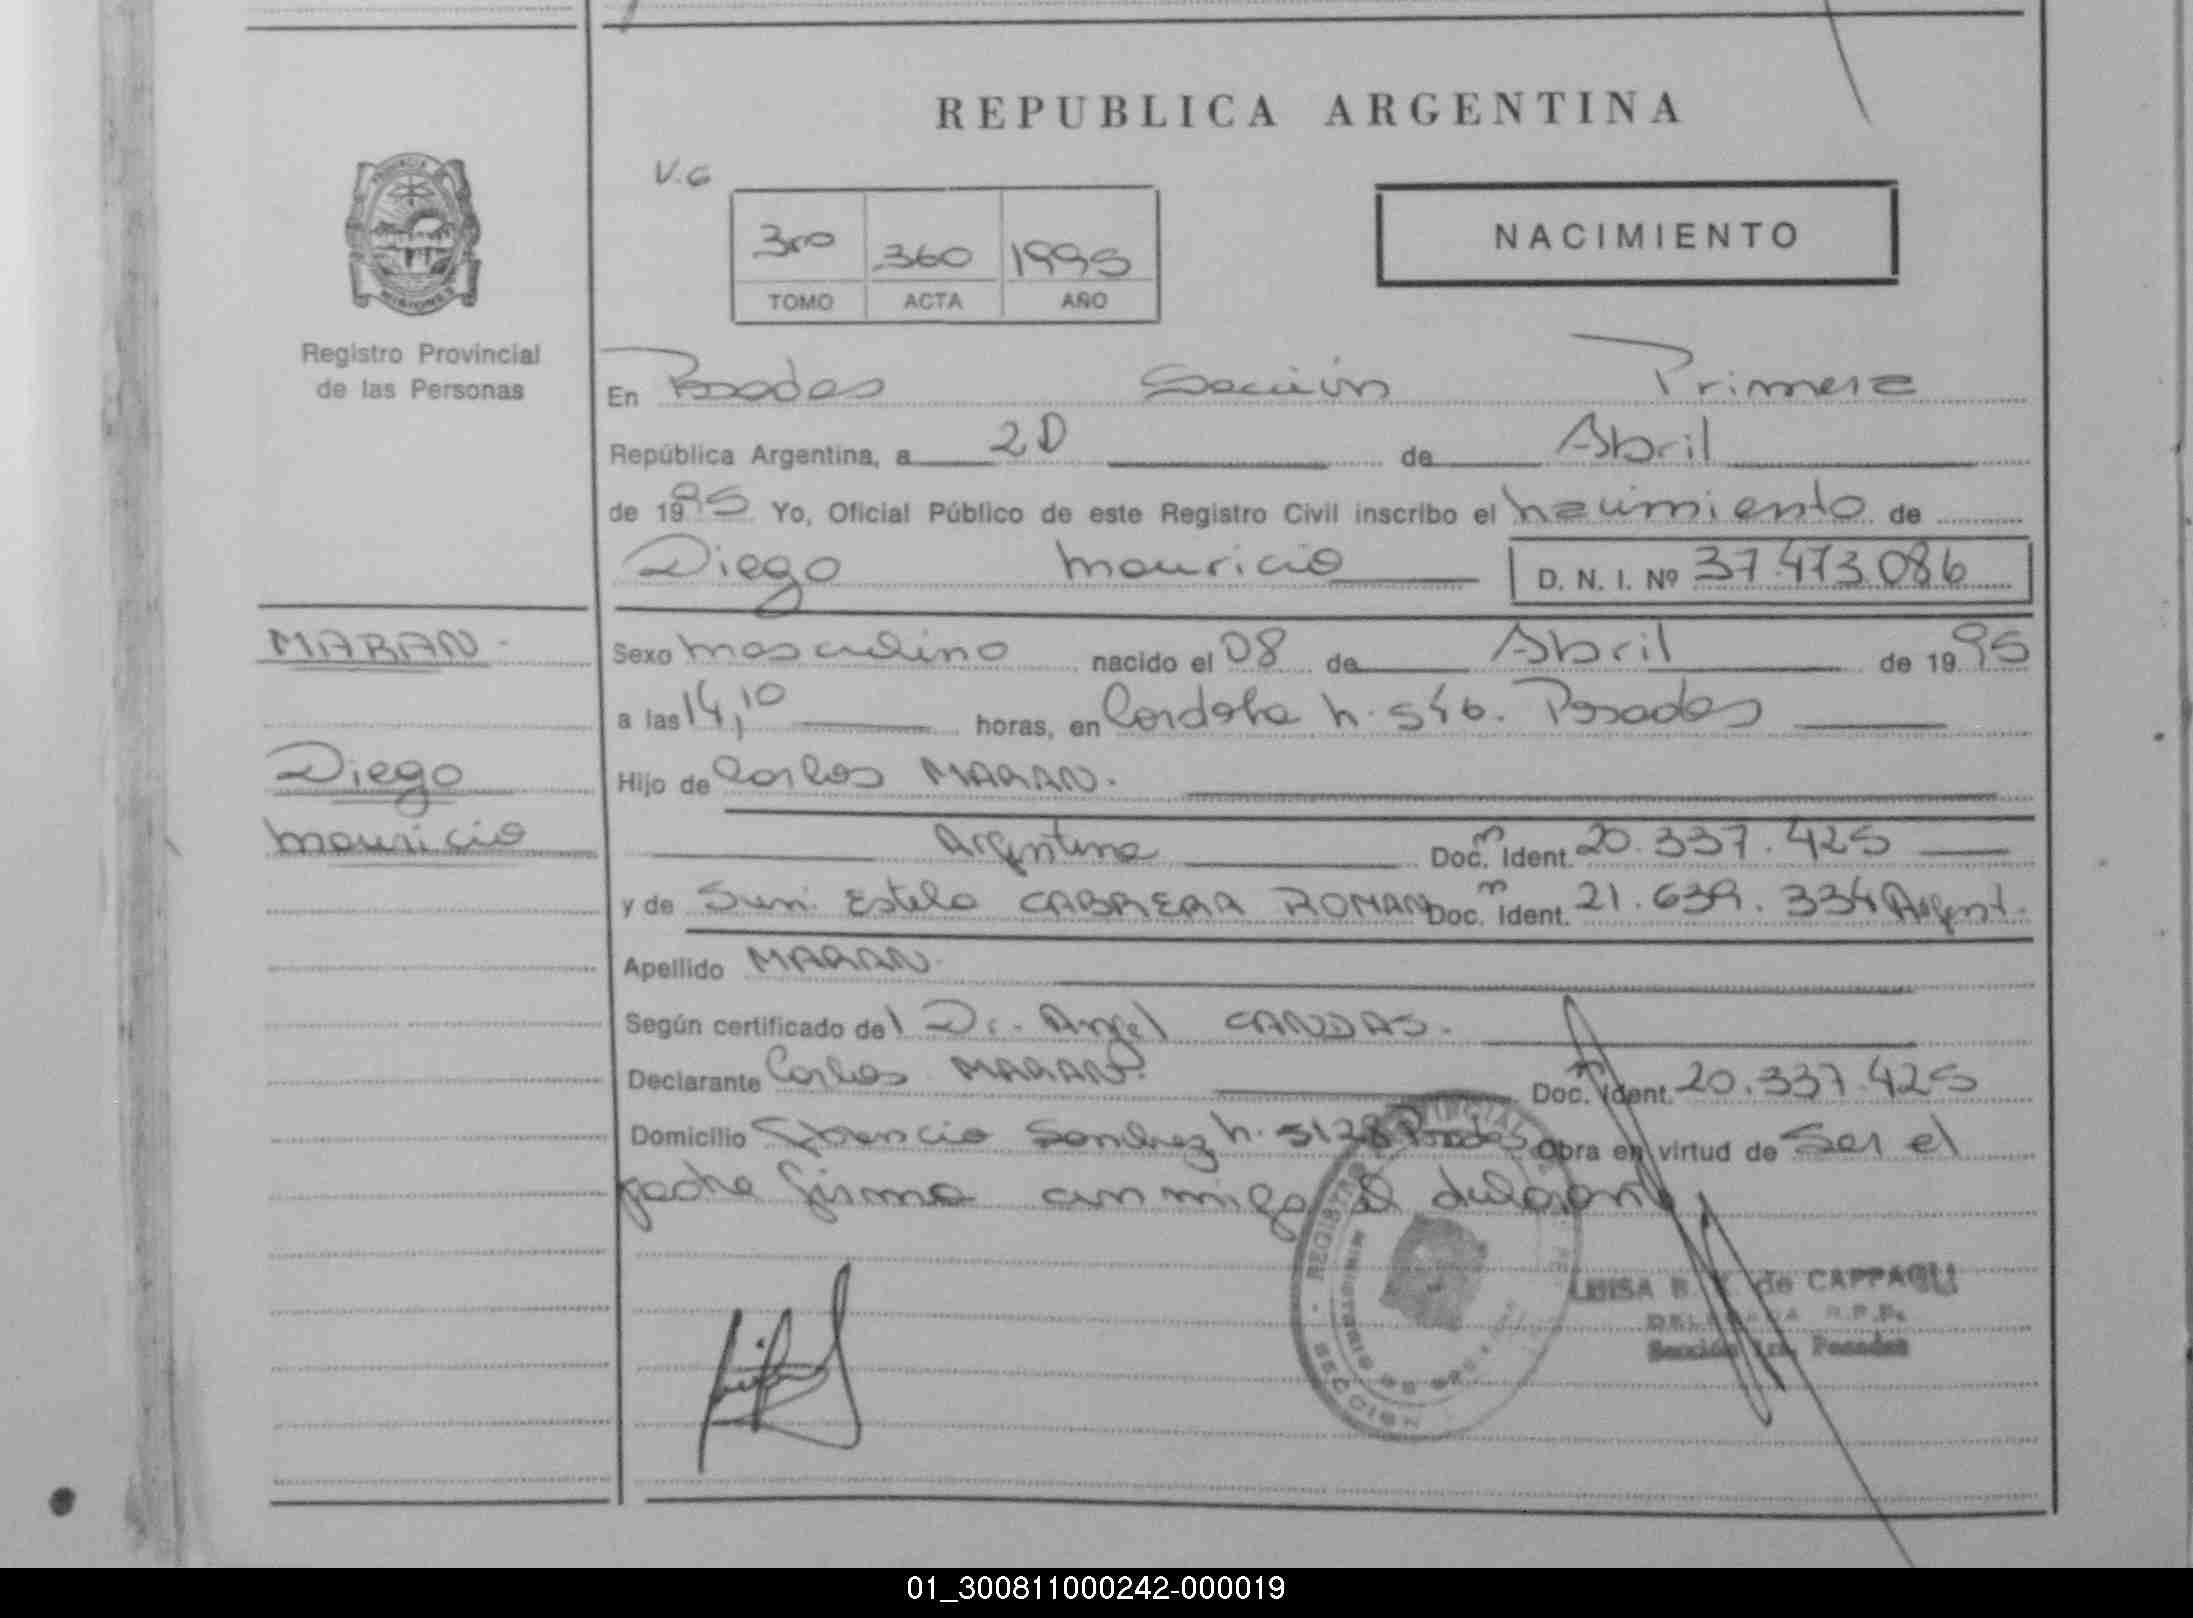 REPUBLICA ARGENTINA
V.G
3ro 360 1995
TOMO ACTA AÑO
NACIMIENTO
PROVINCIA
MISIONES
Registro Provincial
de las Personas
En Posadas Sección Primera
República Argentina, a 20 de Abril
de 1995 Yo, Oficial Público de este Registro Civil inscribo el nacimiento de
Diego Mauricio D. N. I. Nº 37.473.086
MARAN.
Sexo masculino nacido el 08 de Abril de 1995
a las 14,10 horas, en Cordoba n. 546. Posadas
Diego
Hijo de Carlos MARAN.
Mauricio
Argentina Doc. Ident. 20.337.425
y de Estela CABRERA ROMAN Doc. Ident. 21.639.334 Argent.
Apellido MARAN.
Según certificado del Dr. Angel CANDAS.
Declarante Carlos MARAN. Doc. Ident. 20.337.425
Domicilio Florencio Sanchez n. 5128 Posadas Obra en virtud de Ser el
padre firma conmigo el
REGISTRO PROVINCIAL
MINISTERIO DE
SECCION
LUISA B. de CAPPAGLI
DELEGADA R.P.P.
Sección 1ra. Posadas
01_300811000242-000019